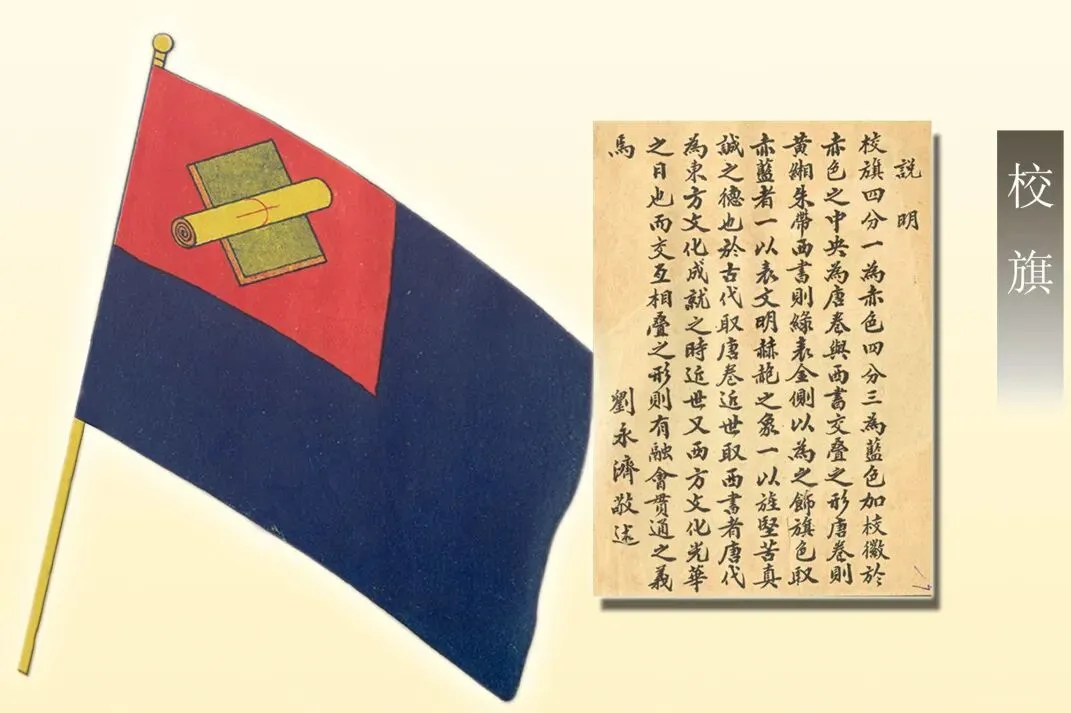 說明
校旗四分一為赤色四分三為藍色加校徽於
赤色之中央為唐卷與西書交疊之形唐卷則
黃緗朱帶西書則綠表金側以為之飾旗色取
赤藍者一以表文明赫赩之象一以旌堅苦真
誠之德也於古代取唐卷近世取西書者唐代
為東方文化成就之時近世又西方文化光華
之日也而交互相疊之形則有融會貫通之義
焉
劉永濟敬述
校旗